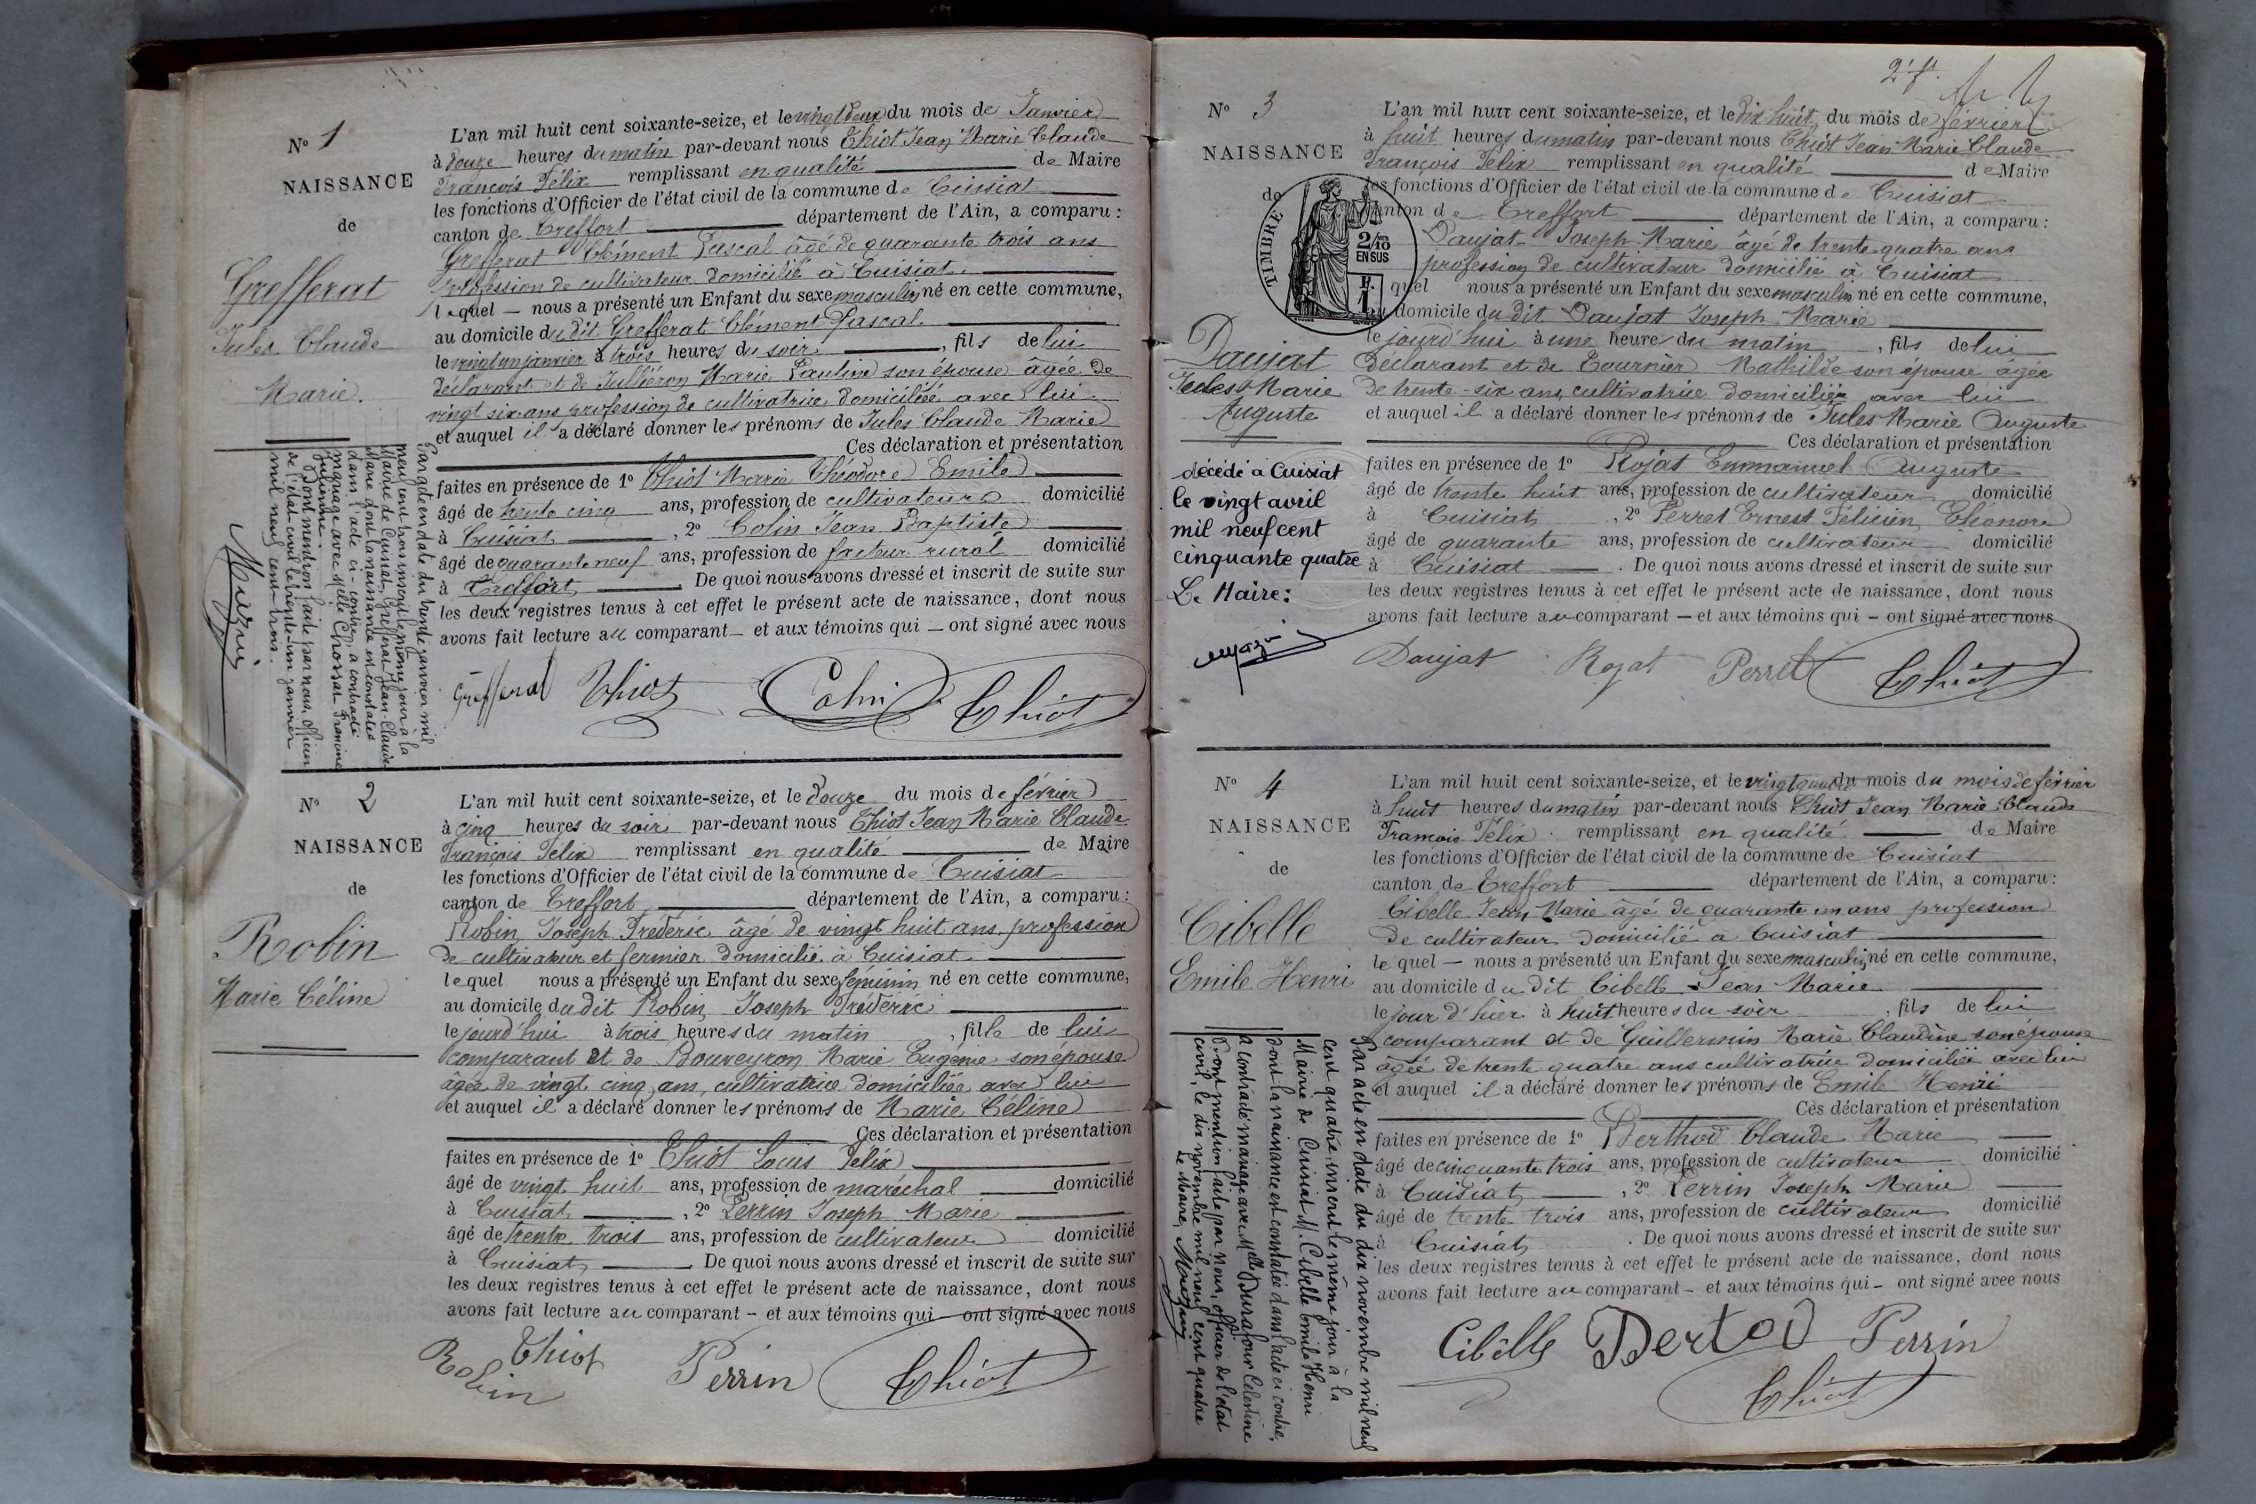 N° 1
NAISSANCE
de
Grefferat
Jules Claude
Marie.
L'an mil huit cent soixante-seize, et le vingt deux du mois de Janvier
à douze heures du matin par-devant nous Thiot Jean Marie Claude
François Félix remplissant en qualité de Maire
les fonctions d'Officier de l'état civil de la commune de Cuisiat
canton de Treffort département de l'Ain, a comparu :
Grefferat Clément Pascal âgé de quarante trois ans
profession de cultivateur domicilié à Cuisiat.
lequel — nous a présenté un Enfant du sexe masculin né en cette commune,
au domicile du dit Grefferat Clément Pascal.
le vingt un janvier à trois heures du soir, fils de lui
déclarant et de Julliéron Marie Pauline son épouse âgée de
vingt six ans profession de cultivatrice domiciliée avec lui
et auquel il a déclaré donner les prénoms de Jules Claude Marie
Ces déclaration et présentation
faites en présence de 1° Thiot Marie Théodore Emile
âgé de trente cinq ans, profession de cultivateur domicilié
à Cuisiat, 2° Colin Jean Baptiste
âgé de quarante neuf ans, profession de facteur rural domicilié
à Treffort. De quoi nous avons dressé et inscrit de suite sur
les deux registres tenus à cet effet le présent acte de naissance, dont nous
avons fait lecture au comparant — et aux témoins qui — ont signé avec nous
Grefferat Thiot Colin Thiot
Par acte en date du trente janvier mil
neuf cent trois inscrit le même jour à la
Mairie de Cuisiat, Grefferat Jean Claude
Marie dont la naissance est constatée
dans l'acte ci-contre, a contracté
mariage avec Melle Chossat Francine
Julienne.
Dont mention faite par nous, officier
de l'état-civil le trente-un janvier
mil neuf cent trois.
N° 2
NAISSANCE
de
Robin
Marie Céline
L'an mil huit cent soixante-seize, et le douze du mois de février
à cinq heures du soir par-devant nous Thiot Jean Marie Claude
François Félix remplissant en qualité de Maire
les fonctions d'Officier de l'état civil de la commune de Cuisiat
canton de Treffort département de l'Ain, a comparu :
Robin Joseph Frédéric âgé de vingt huit ans profession
de cultivateur et fermier domicilié à Cuisiat.
lequel nous a présenté un Enfant du sexe féminin né en cette commune,
au domicile du dit Robin Joseph Frédéric
le jourd'hui à trois heures du matin, fille de lui
comparant et de Bouveyron Marie Eugénie son épouse
âgée de vingt cinq ans, cultivatrice domiciliée avec lui
et auquel il a déclaré donner les prénoms de Marie Céline
Ces déclaration et présentation
faites en présence de 1° Thiot Louis Félix
âgé de vingt huit ans, profession de maréchal domicilié
à Cuisiat, 2° Perrin Joseph Marie
âgé de trente trois ans, profession de cultivateur domicilié
à Cuisiat. De quoi nous avons dressé et inscrit de suite sur
les deux registres tenus à cet effet le présent acte de naissance, dont nous
avons fait lecture au comparant — et aux témoins qui ont signé avec nous
Robin Thiot Perrin Thiot
2e ft.
N° 3
NAISSANCE
de
TIMBRE
2/10 EN SUS
F. 1
Daujat
Jules Marie
Auguste
décédé à Cuisiat
le vingt avril
mil neuf cent
cinquante quatre
Le Maire :
L'an mil huit cent soixante-seize, et le dix huit du mois de février
à huit heures du matin par-devant nous Thiot Jean Marie Claude
François Félix remplissant en qualité de Maire
les fonctions d'Officier de l'état civil de la commune de Cuisiat
canton de Treffort département de l'Ain, a comparu :
Daujat Joseph Marie âgé de trente quatre ans
profession de cultivateur domicilié à Cuisiat
quel nous a présenté un Enfant du sexe masculin né en cette commune,
au domicile du dit Daujat Joseph Marie
le jourd'hui à une heure du matin, fils de lui
déclarant et de Tournier Mathilde son épouse âgée
de trente-six ans, cultivatrice domiciliée avec lui
et auquel il a déclaré donner les prénoms de Jules Marie Auguste
Ces déclaration et présentation
faites en présence de 1° Rojat Emmanuel Auguste
âgé de trente huit ans, profession de cultivateur domicilié
à Cuisiat, 2° Perret Ernest Félicien Eléonore
âgé de quarante ans, profession de cultivateur domicilié
à Cuisiat. De quoi nous avons dressé et inscrit de suite sur
les deux registres tenus à cet effet le présent acte de naissance, dont nous
avons fait lecture au comparant — et aux témoins qui — ont signé avec nous
Daujat Rojat Perret Thiot
N° 4
NAISSANCE
de
Cibelle
Emile Henri
L'an mil huit cent soixante-seize, et le vingt quatre du mois du mois de février
à huit heures du matin par-devant nous Thiot Jean Marie Claude
François Félix remplissant en qualité de Maire
les fonctions d'Officier de l'état civil de la commune de Cuisiat
canton de Treffort département de l'Ain, a comparu :
Cibelle Jean Marie âgé de quarante un ans profession
de cultivateur domicilié à Cuisiat
lequel — nous a présenté un Enfant du sexe masculin né en cette commune,
au domicile du dit Cibelle Jean Marie
le jour d'hier à huit heures du soir, fils de lui
comparant et de Guillermin Marie Claudine son épouse
âgée de trente quatre ans cultivatrice domiciliée avec lui
et auquel il a déclaré donner les prénoms de Emile Henri
Ces déclaration et présentation
faites en présence de 1° Berthod Claude Marie
âgé de cinquante trois ans, profession de cultivateur domicilié
à Cuisiat, 2° Perrin Joseph Marie
âgé de trente trois ans, profession de cultivateur domicilié
à Cuisiat. De quoi nous avons dressé et inscrit de suite sur
les deux registres tenus à cet effet le présent acte de naissance, dont nous
avons fait lecture au comparant — et aux témoins qui — ont signé avec nous
Cibelle Bertod Perrin
Thiot
Par acte en date du dix novembre mil neuf
cent quatre, inscrit le même jour à la
Mairie de Cuisiat M. Cibelle Emile Henri
dont la naissance est constatée dans l'acte ci contre,
a contracté mariage avec Melle Durafour Célestine
Dont mention faite par Nous, officier de l'état
civil, le dix novembre mil neuf cent quatre
Le Maire,